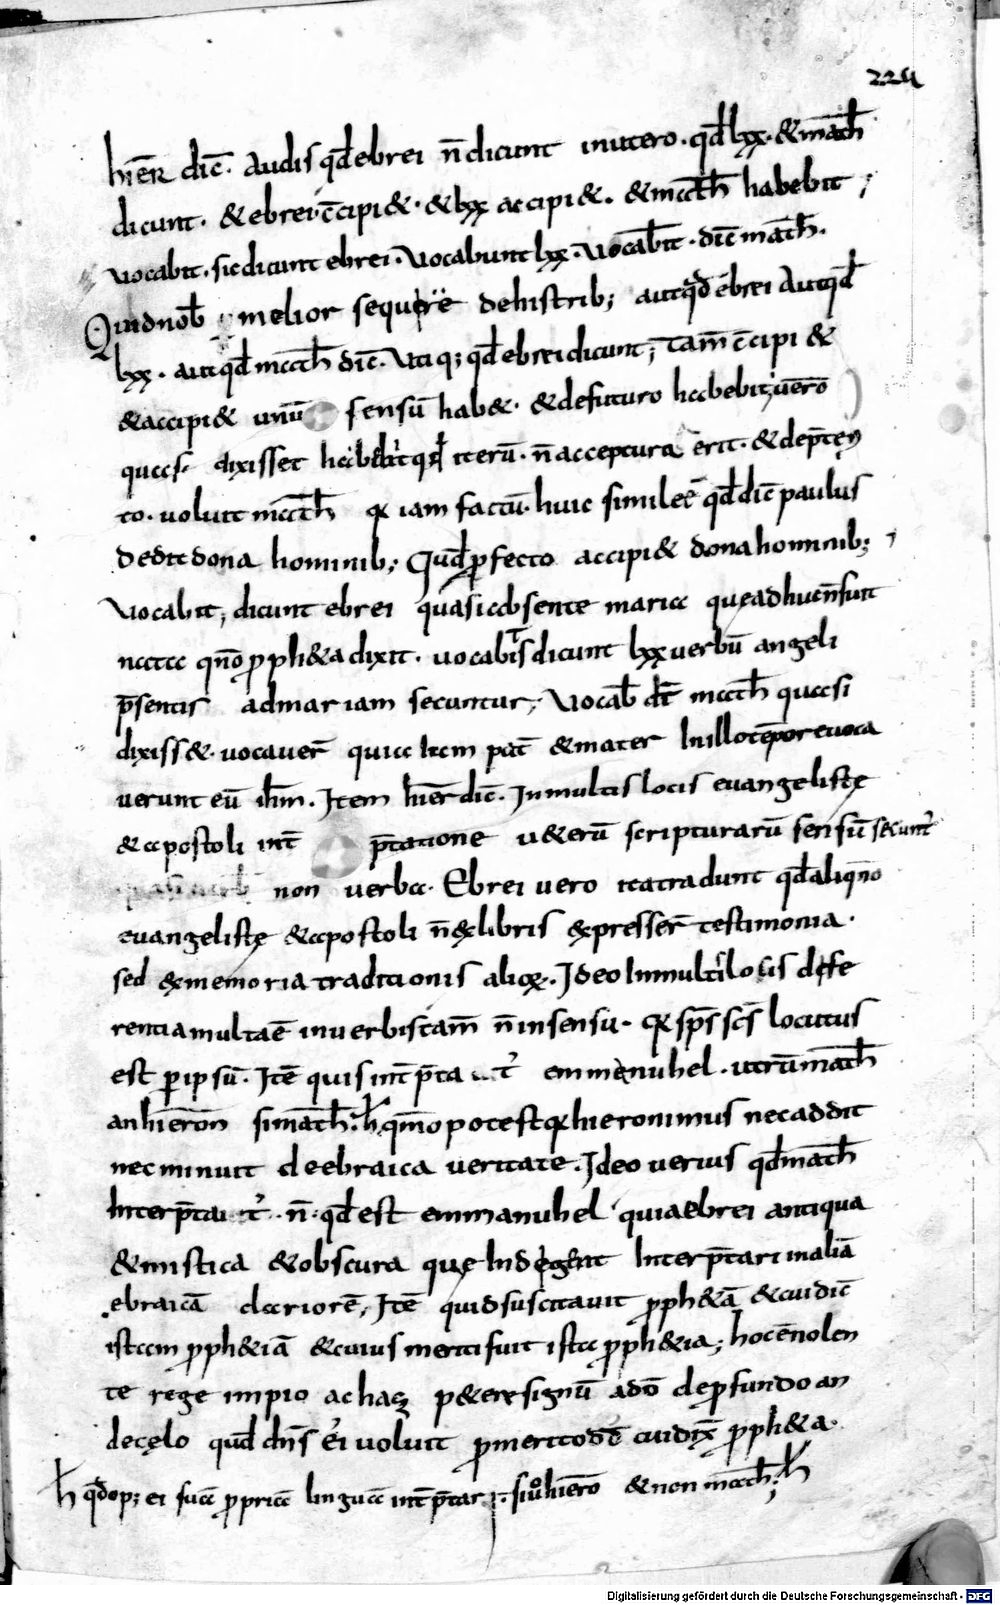 224
hieř dic̄. Audis qđ ebrei n̄ dicunt inutero. qđ lxx. & math̄
dicunt. & ebrei. c̄cipi&. & lxx accipi&. & math̄ habebit;
vocabit. sic dicunt ebrei. vocabunt lxx. vocab̄it. dic̄ math̄.
Quid nob̄ melior sequere dehis trib; aut qđ ebrei Aut qđ
lxx. aut qđ math̄ dic̄. Utiq; qđ ebrei dicunt; Tam̄ c̄cipi&
& accipi& unū sensū hab&. & defuturo habebit; vero
quasi dixisset iterū. n̄ acceptura erit. & dep̄te
to. voluit math̄ iam factū. huic simile qđ dic̄ paulus
dedit dona hominib; Quod ꝓfecto accipi& dona hominib;
vocabit; dicunt ebrei quasi absente maria que adhuc n̄ fuit
nata qn̄o ꝓph&a dixit. vocabis dicunt lxx verbū angeli
p̄sentis ad mariam secuntur; Vocab̄ dt̄ math̄ quasi
dixiss& vocaver̄ quia item pat̄ & mater In illo tēpore voca
verunt eū ihm̄. Item hier̄ dic̄. In multis locis evangelistę
& apostoli int̄ p̄tatione u&erū scripturarū sensū secunt᷑
non verba. Ebrei vero ita tradunt qđ aliqn̄o
evangelistę & apostoli n̄ ex libris expresser̄ testimonia.
sed ex memoria traditionis. Ideo In multis locis defe
rentia multa ē in verbis tam̄ n̄ in sensu. sp̄s sc̄s locutus
est ꝑ ipsū. Itē quis int̄p̄ta t᷑ emmanuhel. utrū math̄
an hieron̄ si math̄. qm̄o potest hieronimus nec addit
nec minuit de ebraica veritate. Ideo verius qđ math̄
Interp̄ta t᷑. n̄. qđ est emmanuhel quia ebrei antiqua
& mistica & obscura que Indegent Interp̄tari in aliā
ebraicā clariorē; Itē quid suscitavit ꝓph&ā & cui dic̄
istam ꝓph&iā & cuius meriti fuit ista ꝓph&ia; hoc ē nolen
te rege impio achaz p&ere signū a dō de ꝓfundo an
de cęlo quod dn̄s ei voluit ꝑ merito dē cui dix̄ ꝓph&a.
ħ qđ op; ei sua ꝓpria lingua int̄p̄tar. & non math̄; ħ
Digitalisierung gefördert durch die Deutsche Forschungsgemeinschaft - DFG